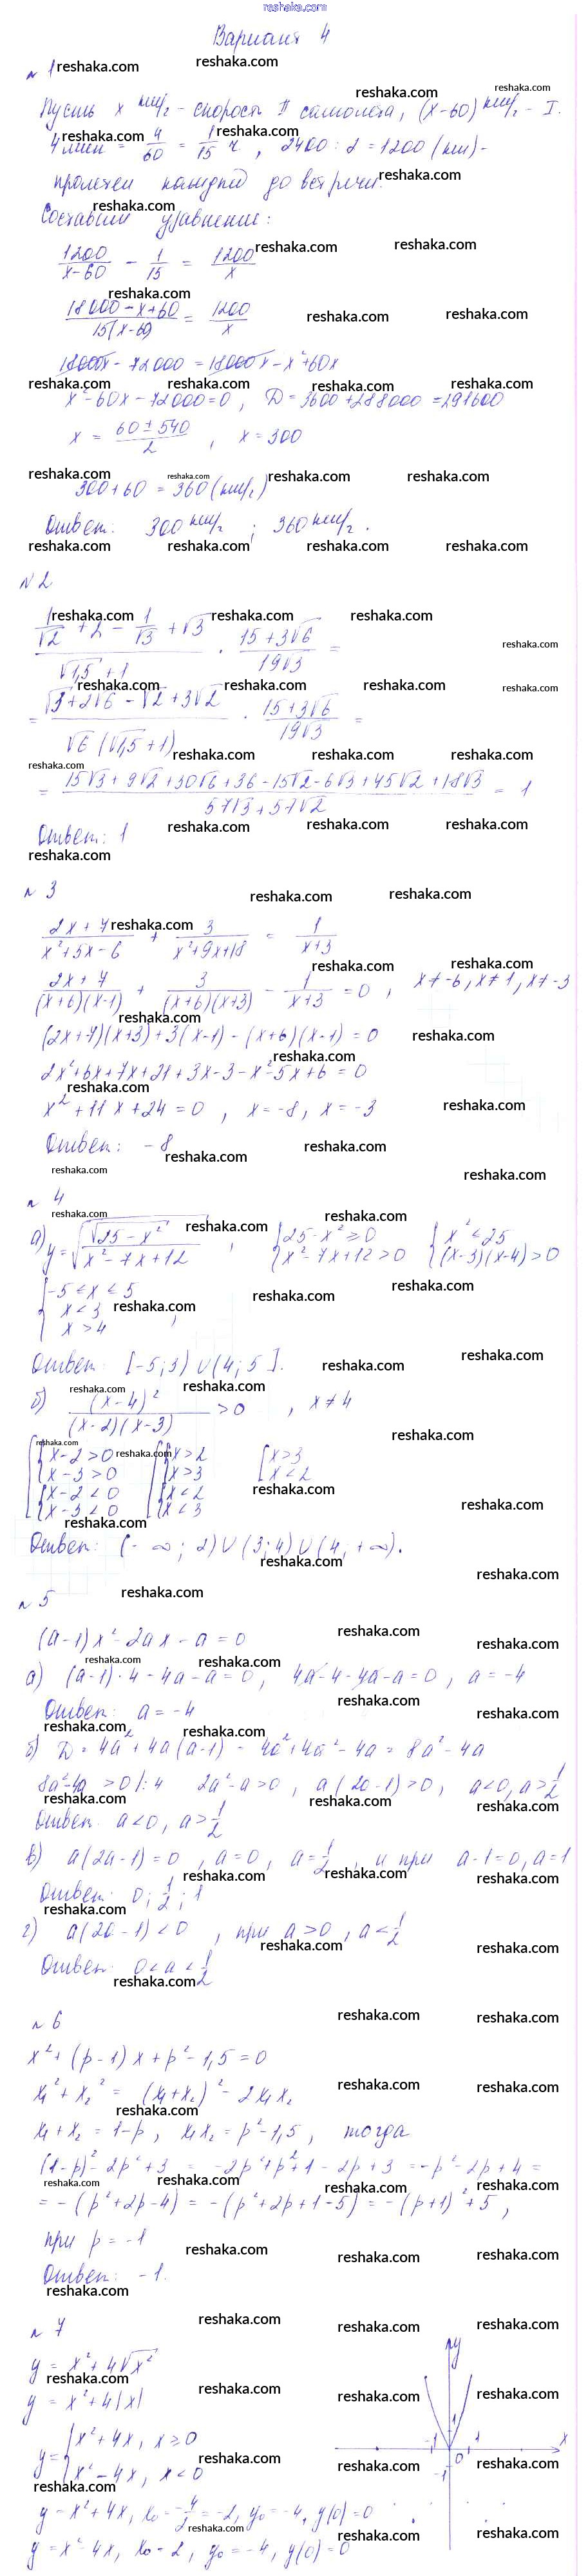 reshaka.com
Вариант 4
№ 1
Пусть x км/ч - скорость II самолета, (x-60) км/ч - I.
4 мин = 4/60 = 1/15 ч, 2400 : 2 = 1200 (км) -
пролетел каждый до встречи.
Составим уравнение:
1200/(x-60) - 1/15 = 1200/x
(18000 - x + 60)/(15(x-60)) = 1200/x
18000x - 72000 = 18000x - x² + 60x
x² - 60x - 72000 = 0, D = 3600 + 288000 = 291600
x = (60 ± 540)/2, x = 300
300 + 60 = 360 (км/ч)
Ответ: 300 км/ч ; 360 км/ч.
№ 2
(1/√2 + 2 - 1/√3 + √3)/(√1,5 + 1) · (15 + 3√6)/(19√3) =
= (√3 + 2√6 - √2 + 3√2)/(√6 (√1,5 + 1)) · (15 + 3√6)/(19√3) =
= (15√3 + 9√2 + 30√6 + 36 - 15√2 - 6√3 + 45√2 + 18√3)/(57√3 + 57√2) = 1
Ответ: 1
№ 3
(2x + 7)/(x² + 5x - 6) + 3/(x² + 9x + 18) = 1/(x + 3)
(2x + 7)/((x+6)(x-1)) + 3/((x+6)(x+3)) - 1/(x+3) = 0, x ≠ -6, x ≠ 1, x ≠ -3
(2x+7)(x+3) + 3(x-1) - (x+6)(x-1) = 0
2x² + 6x + 7x + 21 + 3x - 3 - x² - 5x + 6 = 0
x² + 11x + 24 = 0, x = -8, x = -3
Ответ: -8
№ 4
а) y = √(√(25 - x²)/(x² - 7x + 12)), {25 - x² ≥ 0 {x² ≤ 25
{x² - 7x + 12 > 0 {(x-3)(x-4) > 0
{-5 ≤ x ≤ 5
x < 3
x > 4,
Ответ: [-5; 3) ∪ (4; 5].
б) (x-4)²/((x-2)(x-3)) > 0, x ≠ 4
[{x - 2 > 0 [{x > 2 [x > 3
{x - 3 > 0 {x > 3 [x < 2
{x - 2 < 0 {x < 2
{x - 3 < 0 {x < 3
Ответ: (-∞; 2) ∪ (3; 4) ∪ (4; +∞).
№ 5
(a-1)x² - 2ax - a = 0
а) (a-1)·4 - 4a - a = 0, 4a - 4 - 4a - a = 0, a = -4
Ответ: a = -4
б) D = 4a² + 4a(a-1) = 4a² + 4a² - 4a = 8a² - 4a
8a² - 4a > 0 /: 4 2a² - a > 0, a(2a-1) > 0, a < 0, a > 1/2
Ответ: a < 0, a > 1/2
в) a(2a-1) = 0, a = 0, a = 1/2, и при a - 1 = 0, a = 1
Ответ: 0; 1/2; 1
г) a(2a-1) < 0, при a > 0, a < 1/2
Ответ: 0 < a < 1/2
№ 6
x² + (p-1)x + p² - 1,5 = 0
x₁² + x₂² = (x₁ + x₂)² - 2x₁x₂
x₁ + x₂ = 1 - p, x₁x₂ = p² - 1,5, тогда
(1-p)² - 2p² + 3 = -2p² + p² + 1 - 2p + 3 = -p² - 2p + 4 =
= -(p² + 2p - 4) = -(p² + 2p + 1 - 5) = -(p+1)² + 5,
при p = -1
Ответ: -1.
№ 7
y = x² + 4√x²
y = x² + 4|x|
y = {x² + 4x, x ≥ 0
{x² - 4x, x < 0
y = x² + 4x, x₀ = -4/2 = -2, y₀ = -4, y(0) = 0
y = x² - 4x, x₀ = 2, y₀ = -4, y(0) = 0
y
1
-1 0 1 x
-1